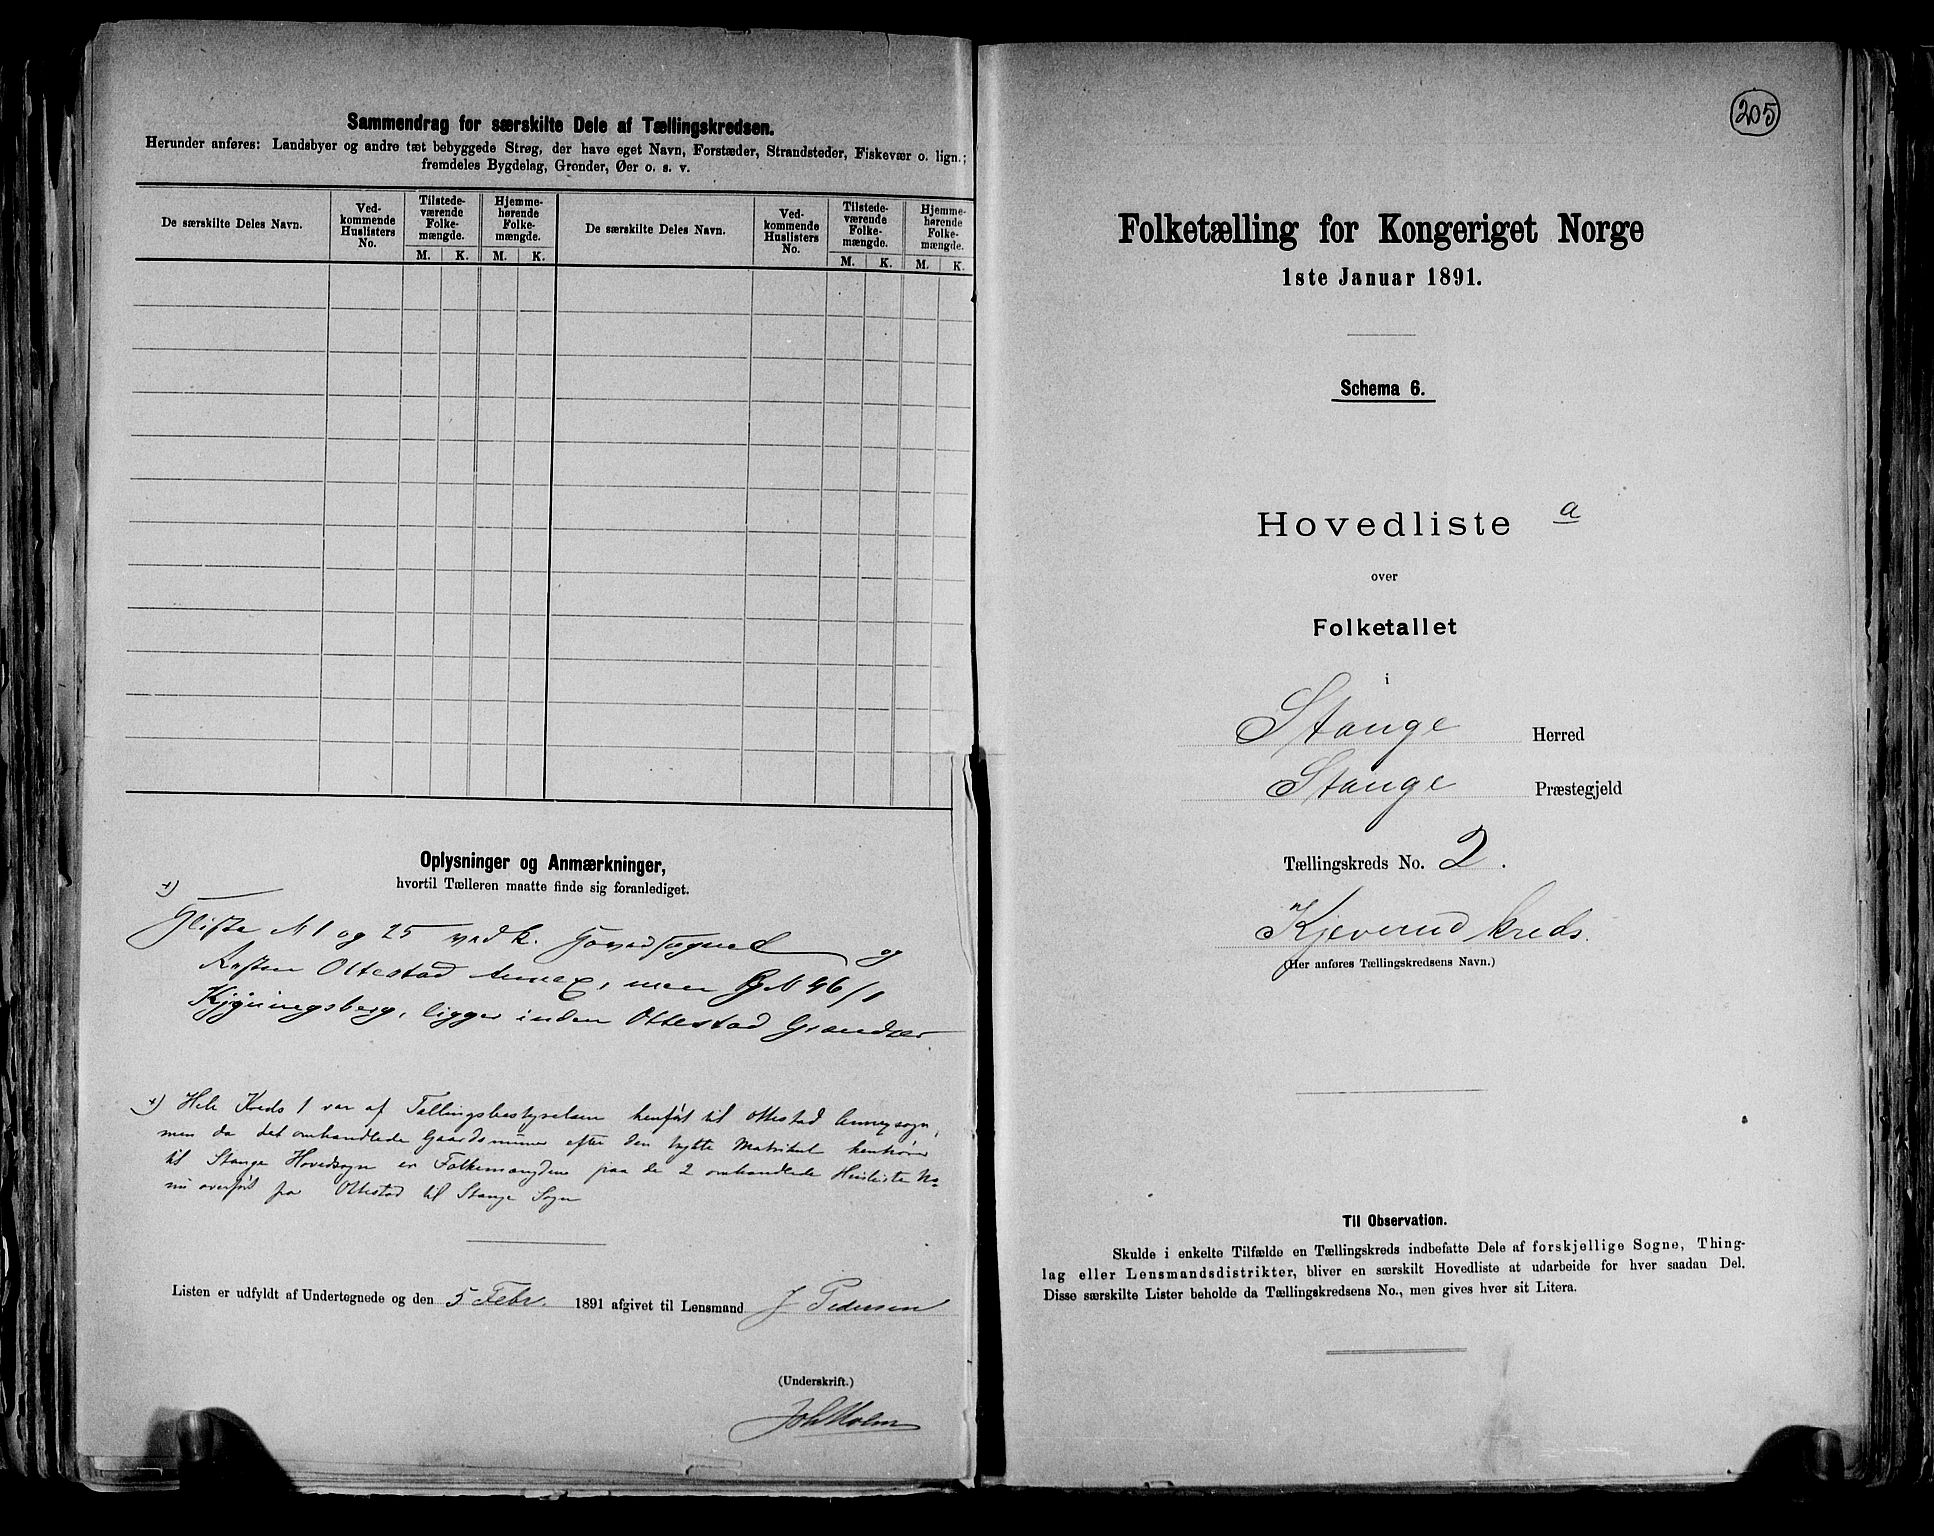 Sammendrag for særskilte Dele af Tællingskredsen.
Herunder anføres: Landsbyer og andre tæt bebyggede Strøg, der have eget Navn, Forstæder, Strandsteder, Fiskevær o. lign.;
fremdeles Bygdelag, Grender, Øer o. s. v.
De særskilte Deles Navn.
Ved-
kommende
Huslisters
No.
Tilstede-
værende
Folke-
mængde.
Hjemme-
hørende
Folke-
mængde.
De særskilte Deles Navn.
Ved-
kommende
Huslisters
No.
Tilstede-
værende
Folke-
mængde.
Hjemme-
hørende
Folke-
mængde.
M. K. M. K. M. K. M. K.
Oplysninger og Anmærkninger,
hvortil Tælleren maatte finde sig foranlediget.
N 1 og 25 og
Resten Ottestad Annex, men N 46/1
ligger inden Ottestad
+) Hele Kreds 1 var af Tællingsbestyrelsen henført til Ottestad Annexsogn,
men da det omhandlede Gaardsnummer efter den nytte Matrikul henhører
til Stange Hovedsogn er Folkemængden paa de 2 omhandlede Husliste No
nu overført fra Ottestad til Stange Sogn
Listen er udfyldt af Undertegnede og den 5 Febr. 1891 afgivet til Lensmand J Pedersen
(Underskrift.)
Joh Holm
205
Folketælling for Kongeriget Norge
1ste Januar 1891.
Schema 6.
Hovedliste a
over
Folketallet
i
Stange Herred
Stange Præstegjeld
Tællingskreds No. 2.
Kjeverud kreds.
(Her anføres Tællingskredsens Navn.)
Til Observation.
Skulde i enkelte Tilfælde en Tællingskreds indbefatte Dele af forskjellige Sogne, Thing-
lag eller Lensmandsdistrikter, bliver en særskilt Hovedliste at udarbeide for hver saadan Del.
Disse særskilte Lister beholde da Tællingskredsens No., men gives hver sit Litera.